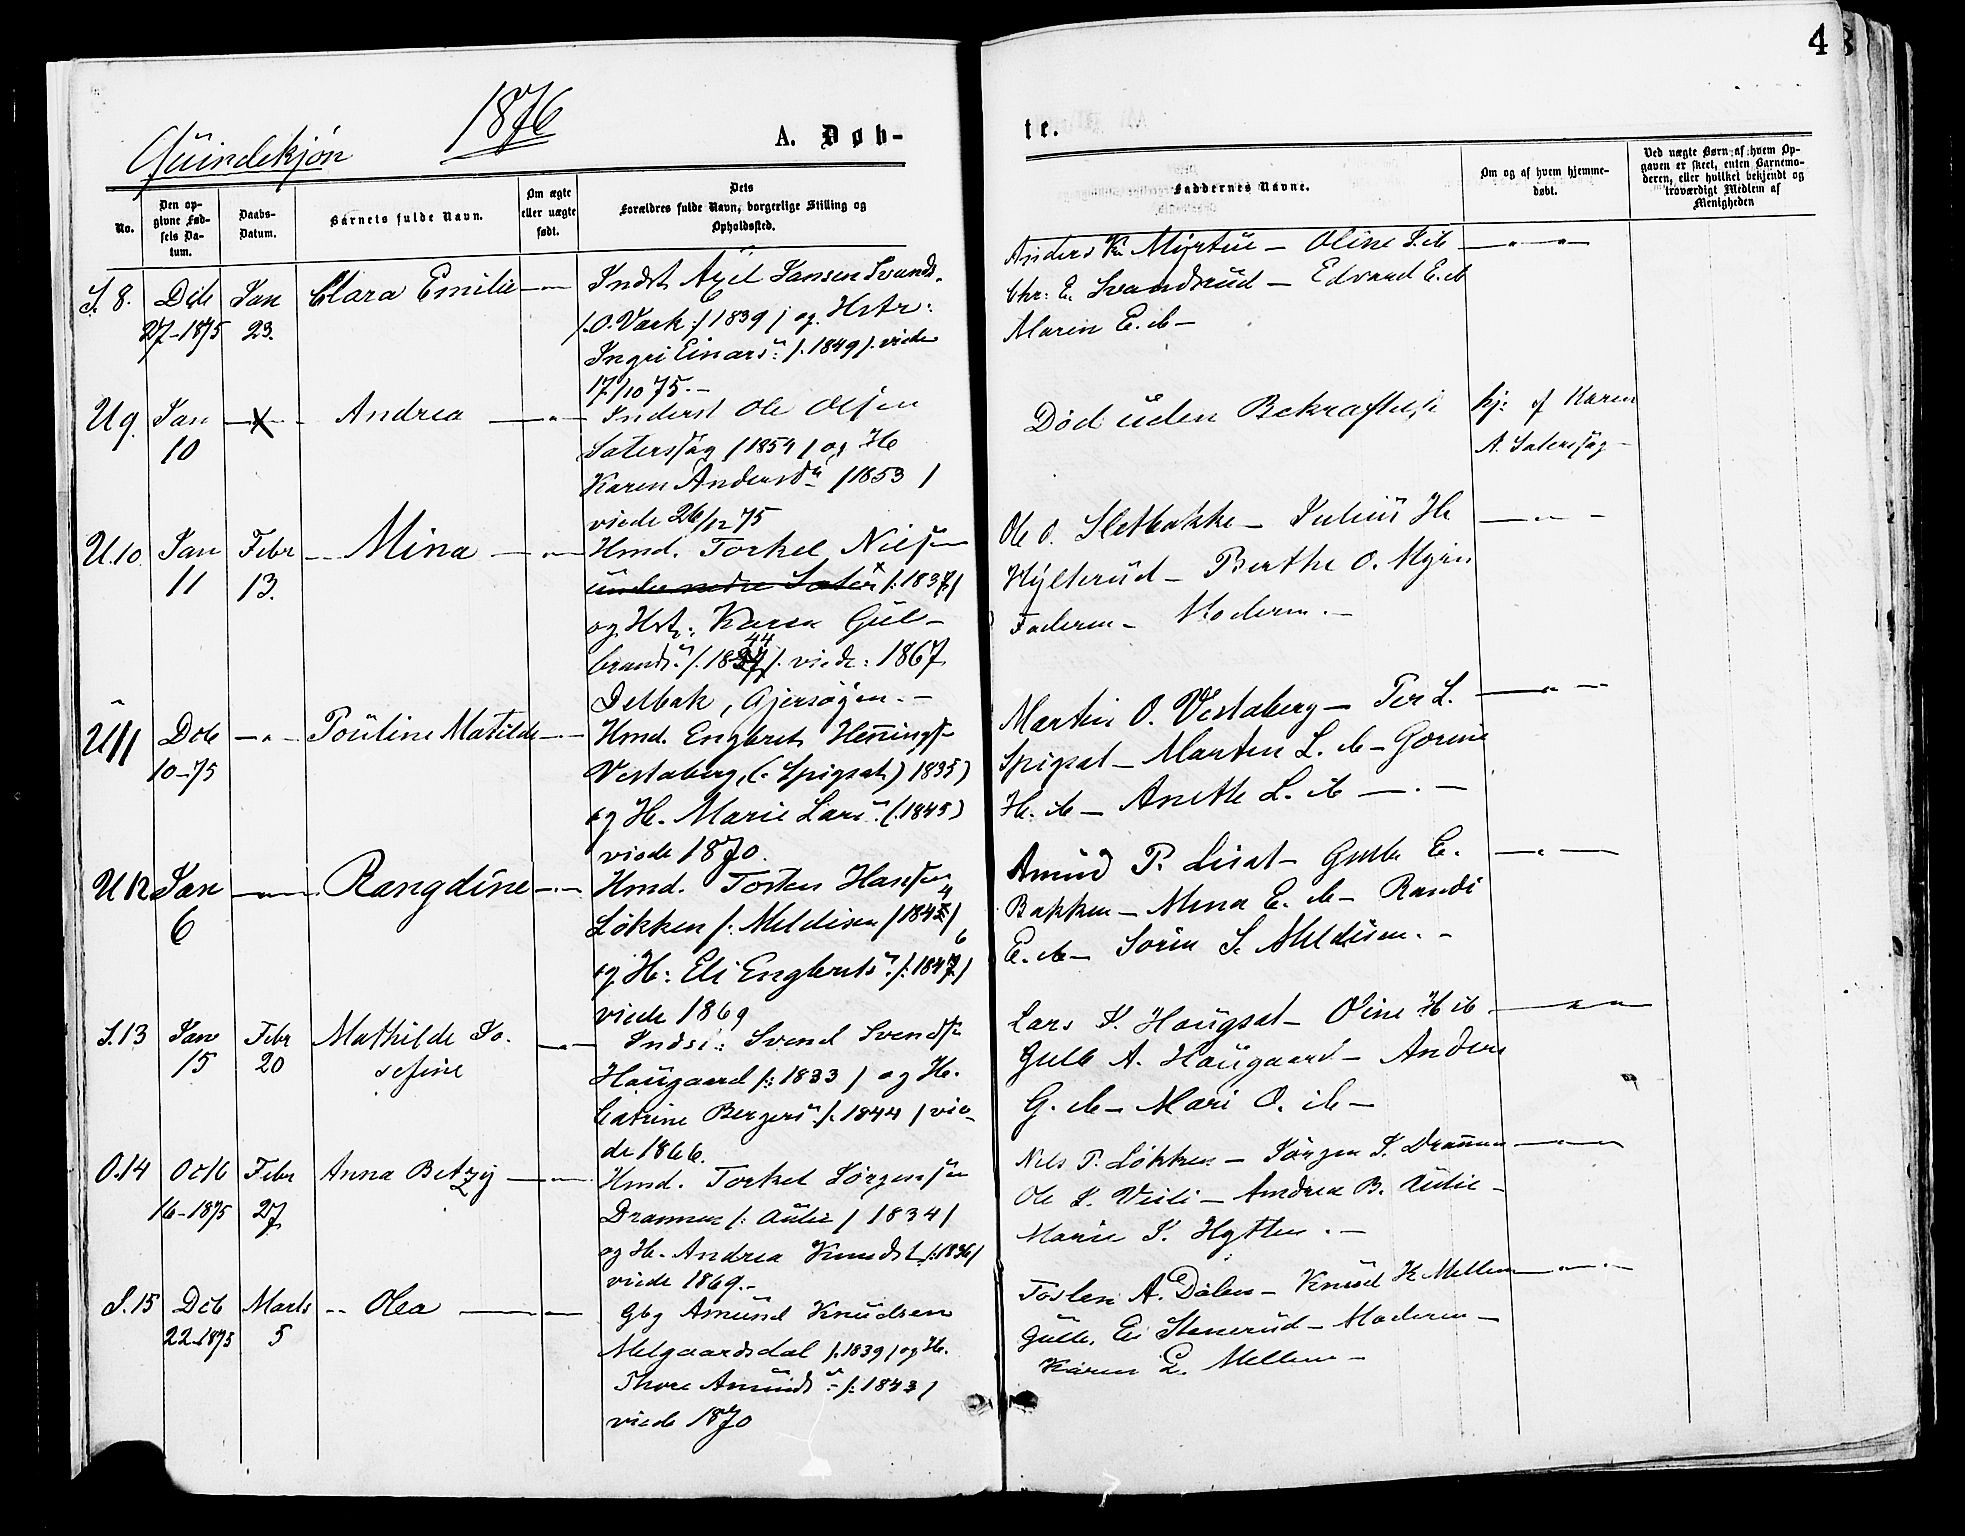 4
1876
Qvindekjön
A. Døb-
te.
No.
Den op-
givne Fød-
sels Da-
tum.
Daabs-
Datum.
Barnets fulde Navn.
Om ægte
eller uægte
født.
Dets
Forældres fulde Navn, borgerlige Stilling og
Opholdssted.
Faddernes Navne.
Om og af hvem hjemme-
døbt.
Ved uægte Børn af hvem Op-
gaven er skeet, enten Barnemo-
deren, eller hvilket bekjendt og
troværdigt Medlem af
Menigheden
S. 8. Deb Jan Clara Emilie — Indst Axel Jansen Svends.
27-1875 23. /:O. Værk:/ 1839 / og Hstr:
Ingri Einars: /: 1849 /. viede
17/10 75. —
Anders K. Myrtue — Oline S. ib — " —
Chr: E. Svandsrud — Edvard E. ib
Maren E. ib —
U 9. Jan — Andrea — " — Inderst Ole Olsen
10 Sætersag / 1854 / og H
Karen Andersd / 1853 /
viede 26/12 75
Död uden Bekræftelse
hj: af Karen
A. Sætersag —
U. 10. Jan Febr — Mina — Hmd. Torkel Nilsen
11 13. under nedre Sæter /: 1837 /
og Hst: Karen Gul-
44
brands: /: 1837 /. viede: 1867
Delbak, Gjersøjen. —
Ole O. Sletbakke — Julius H
Hylterud — Berthe O. Myren
Faderen — Moderen. —
U 11 Deb — " — Pouline Matilde — Hmd. Engbret Hennings
10-75 Vestaberg, (: Spigset) 1835)
og H. Marie Lars: (: 1845)
viede 1870.
Martin O. Vestaberg — Per L.
Spigset — Marten L. ib — Gorine
H. ib — Anette L. ib — . —
U 12 Jan — " — Rangdine — Hmd. Tosten Hansen
6 Løkken /: Meldieen / 184 4 /
og H: Eli Engbrets: /: 184 6 /
viede 1869
Amund P. Lisæt — Gulb E.
Bakken — Mina E. ib — Randi
E. ib — Sörin S. Meldieen. —
S. 13 Jan Febr Mathilde Jo- — Indsi: Svend Svends
15 20 sefine Haugaard /: 1833 / og H.
Catrine Bergers: /. 1844 / vie-
de 1866.
Lars K. Haugset — Oline H ib
Gulb A. Haugaard — Anders
G. ib — Mari O. ib —
O. 14 Octb Febr Anna Betzy — Hmd. Torkel Jörgensen
16-1875 27 Drammen /: Aulie / 1834 /
og H. Andrea Knudst /: 1836 /
viede 1869. —
Nils P. Løkken — Jörgen S. Drammen
Ole L. Veili — Andrea B. Aulie —
Marie K. Hytten. —
S. 15 Deb Marts — Olea — Gbg Amund Knudsen
22-1875 5 Melgaardsdal /: 1839 / og H.
Thore Amunds: /: 1843 /
viede 1870
Tosten A. Dalen — Knud K. Mellem
Gulb. E. Stenerud — Moderen —
Karen L. Mellem —